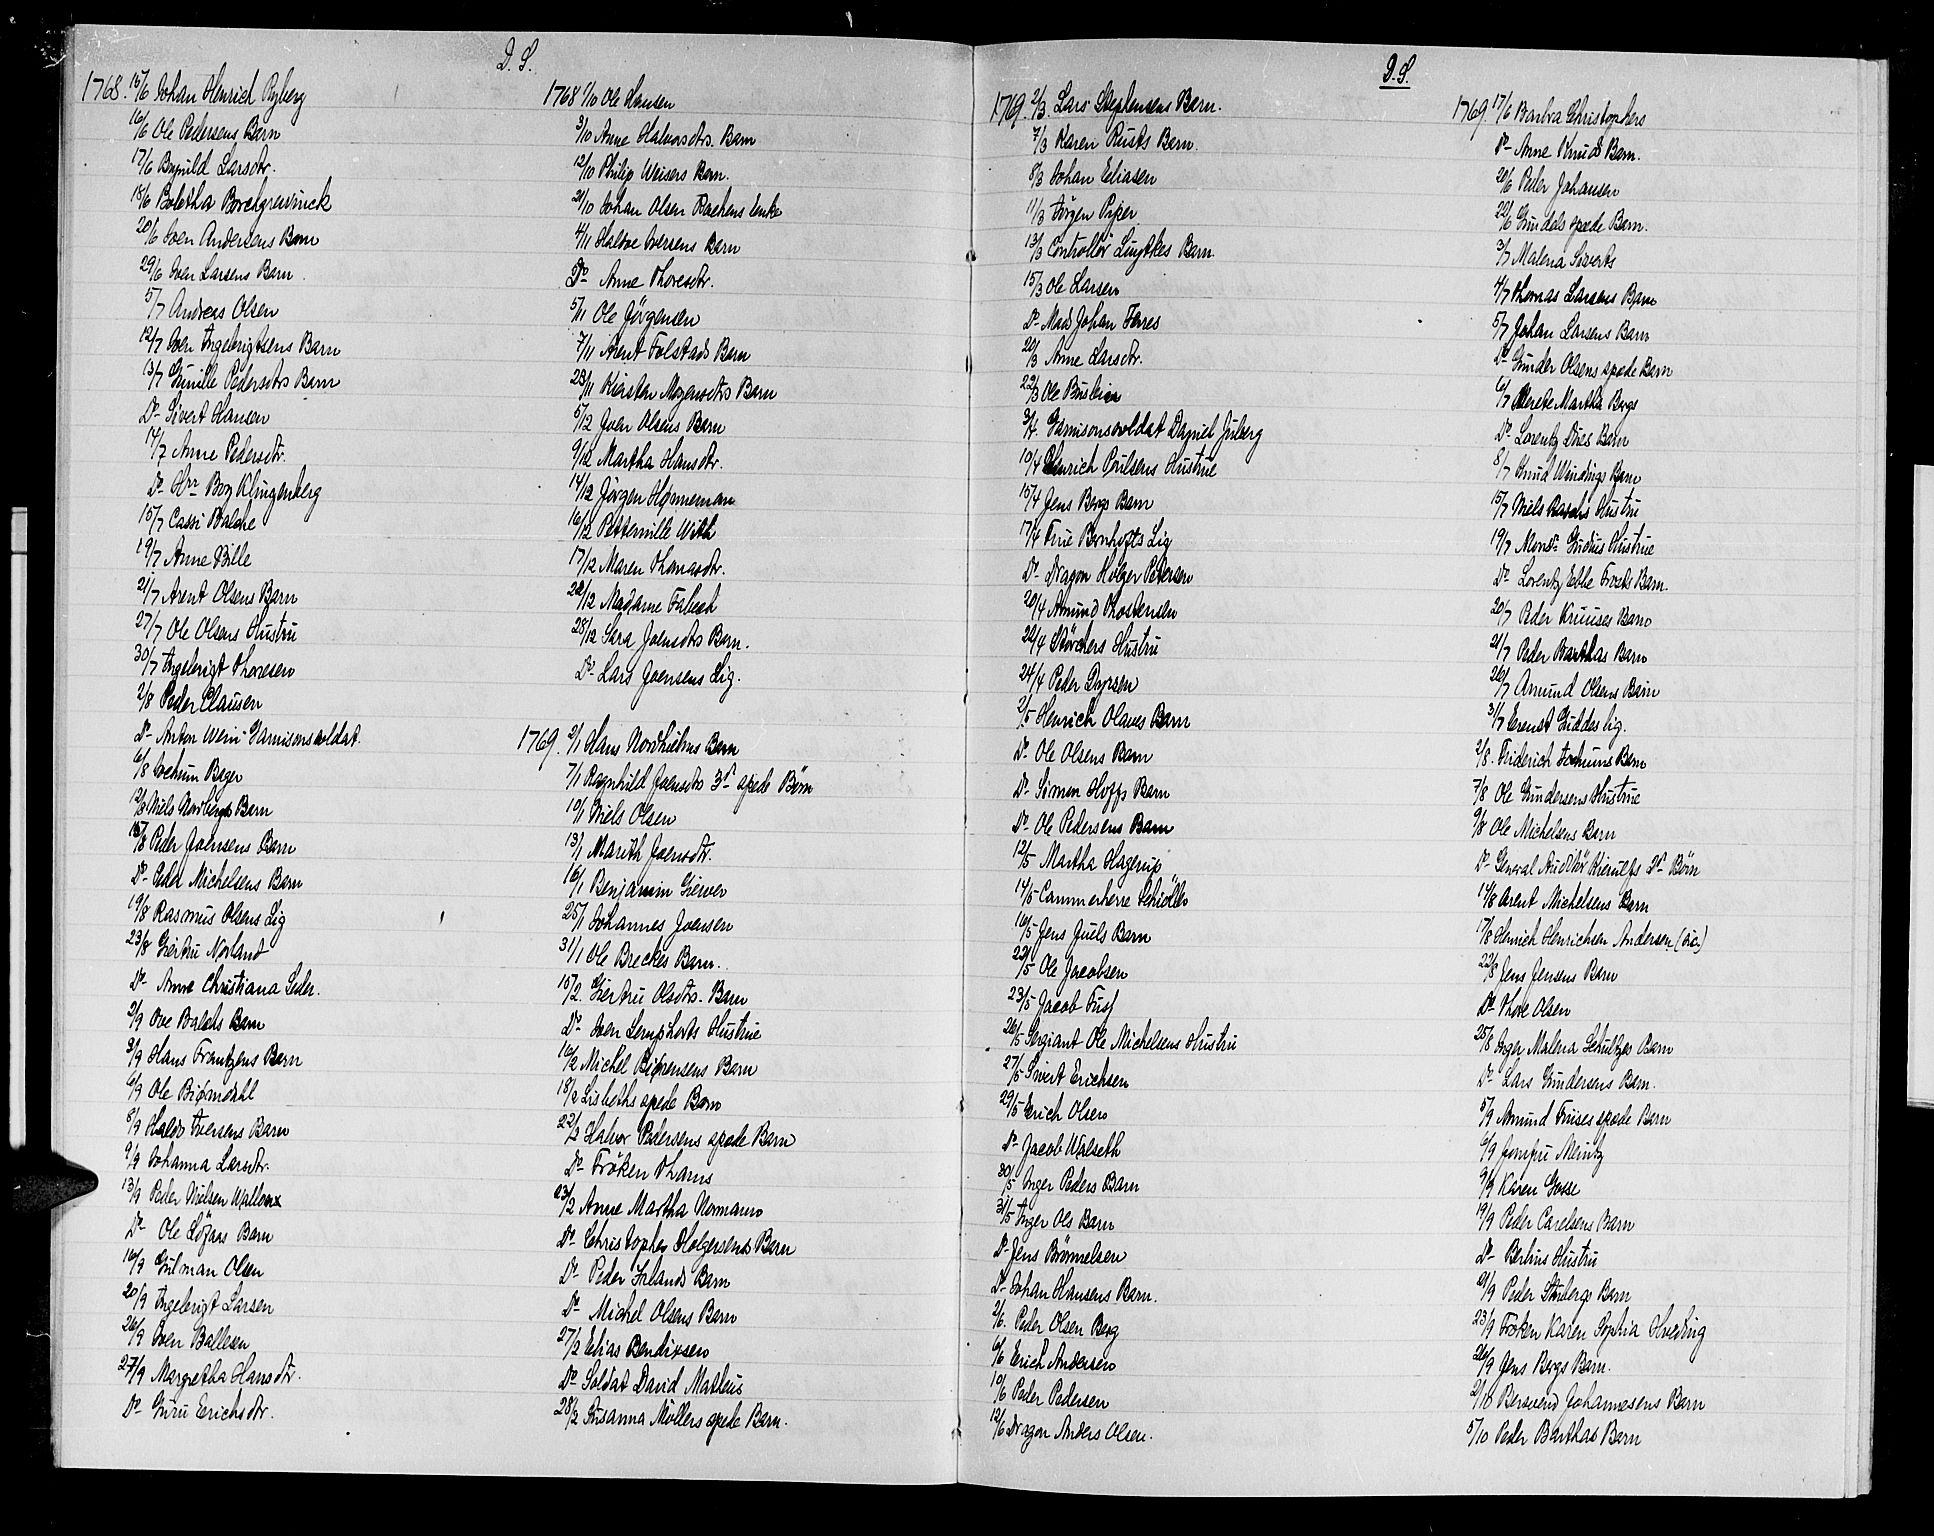 D. S.
1768. 15/6 Johan Henrich Ryberg
16/6 Ole Pedersens Barn
17/6 Larsdtr.
18/6 Boletha Borchgrevinck
20/6 Iver Andersens Barn
29/6 Iver Larsens Barn
5/7 Andreas Olsen
12/7 Iver Ingebrigtsens Barn
13/7 Gunille Pedersdtrs Barn
Do- Sivert Hansen
14/7 Anne Pedersdtr.
Do Hrr Boy Klingenberg
15/7 Cassi Balche
19/7 Anne Bille
21/7 Arent Olsens Barn
27/7 Ole Olsens Hustru
30/7 Ingebrigt Thoresen
2/8 Peder Clausen
Do- Anton Garnisonssoldat
6/8 Bager
12/8 Niels Norbergs Barn
15/8 Peder Joensens Barn
Do- Peder Michelsens Barn
19/8 Rasmus Olsens Lig
23/8 Giertru Norland
Do- Anne Christiana Seder.
2/9 Ove Balchs Barn
3/9 Hans Frantzens Barn
6/9 Ole Biørndahl
8/9 Iversens Barn
9/9 Johanna Larsdtr.
13/9 Peder Nielsen
Do- Ole Barn
16/9 Gulman Olsen
20/9 Ingebrigt Larsen
26/9 Iver Ballesen
27/9 Margretha Hansdtr.
Do- Guru Erichsdtr.
1768 1/10 Ole Hansen
3/10 Anne Halvorsdtrs. Barn
12/10 Philip Weisers Barn.
21/10 Johan Olsen Enke
4/11 Halvor Iversens Barn
Do Anne Thoresdtr.
5/11 Ole Jörgensen
7/11 Arent Folstads Barn
23/11 Kirsten Mogensdtrs Barn
5/12 Joen Olsens Barn
9/12 Martha Hansdtr.
14/12 Jörgen Hønneman
16/12 Petternille With
17/12 Maren Thomasdtr.
22/12 Madame Fabech
28/12 Sara Joensdtrs Barn.
Do- Lars Joensens Lig.
1769. 2/1 Hans Barn
7/1 Ragnhild Joensdtrs 3de spede Börn
10/1 Niels Olsen
13/1 Marith Joensdtr.
16/1 Benjamin
25/1 Johannes Joensen
31/1 Ole Breckes Barn.
15/2. Giertru Olsdtrs- Barn
Do- Iver Hustrue
16/2 Michel Biörensens Barn
18/2 Lisbeths spede Barn
22/2 Halvor Pedersens spæde Barn
Do- Fröken Thams
23/2 Anne Martha Normann
Do- Christopher Holgersens Barn
Do- Peder Irlands Barn
Do- Michel Olsens Barn
27/2 Elias Bendixsen
Do- Soldat David Matheus
28/2 Susanna Möllers spede Barn.
D. S.
1769. 2/3 Lars Stephensens Barn.
7/3 Karen Rusts Barn.
8/3 Johan Eliasen
11/3 Jörgen Piper
13/3 Controllör Luytkes Barn
15/3 Ole Larsen
Do- Mad Johan Torres
20/3 Anne Larsdtr.
22/3 Ole
3/4 Garnisonssoldat Daniel Juberg
10/4 Henrich Poulsens Hustrue
15/4 Jens Bergs Barn
17/4 Frue Bernhofts Lig
Do- Dragon Holger Petersen
20/4 Amund Thostensen
22/4 Störchers Hustru
24/4 Peder Dyrsen
2/5 Henrich Olaves Barn
Do- Ole Olsens Barn
Do- Simon Hoffs Barn
Do- Ole Pedersens Barn
12/5 Martha Hagerup
14/5 Cammerherre Schöller
16/5 Jens Juels Barn
22/5 Ole Jacobsen
23/5 Jacob
26/5 Sergiant Ole Michelsens Hustru
27/5 Sivert Erichsen
29/5 Erich Olsen
Do- Jacob Walseth
30/5 Inger Peders Barn
31/5 Inger Ols Barn
Do- Jens
Do- Johan Hansens Barn.
2/6. Peder Olsen Berg
6/6 Erich Andersen
10/6 Peder Pedersen
12/6 Dragon Anders Olsen.
1769. 17/6 Barbra Christophers
Do- Anne Knuds Barn.
20/6 Peder Johansen
22/6 Gundels spæde Barn.
3/7 Malena Siverts
4/7 Thomas Larsens Barn
5/7 Johan Larsens Barn
Do- Gunder Olsens spæde Barn
6/7 Merete Martha Bergs
Do- Lorentz Dues Barn
8/7 Knud Barn
15/7 Niels Baschs Hustru
19/7 Monsr. Hustrue
Do- Lorentz Ebbe Frosts Barn.
20/7 Peder Kruuses Barn
21/7 Peder Barthas Barn
26/7 Amund Olsens Barn
31/7 Ernst Guddes lig.
2/8. Friderich Jochums Barn
7/8 Ole Gundersens Hustrue
9/8 Ole Michelsens Barn
Do- General Auditör 2de Börn
14/8 Arent Michelsens Barn
17/8 Henrich Henrichsen Andersen (sic)
22/8 Jens Jensens Barn
Do- Thore Olsen
25/8 Inger Malena Schultzes Barn
Do- Lars Gundersens Barn.
5/9 Amund Truises spæde Barn
6/9 Jomfru Meintz
9/9 Karen Gosse
19/9 Peder Carelsens Barn
Do- Berlius Hustru
21/9 Peder Barn
23/9 Fröken Karen Sophia Hveding
26/9 Jens Bergs Barn.
2/10 Johannesens Barn
5/10 Peder Barthas Barn